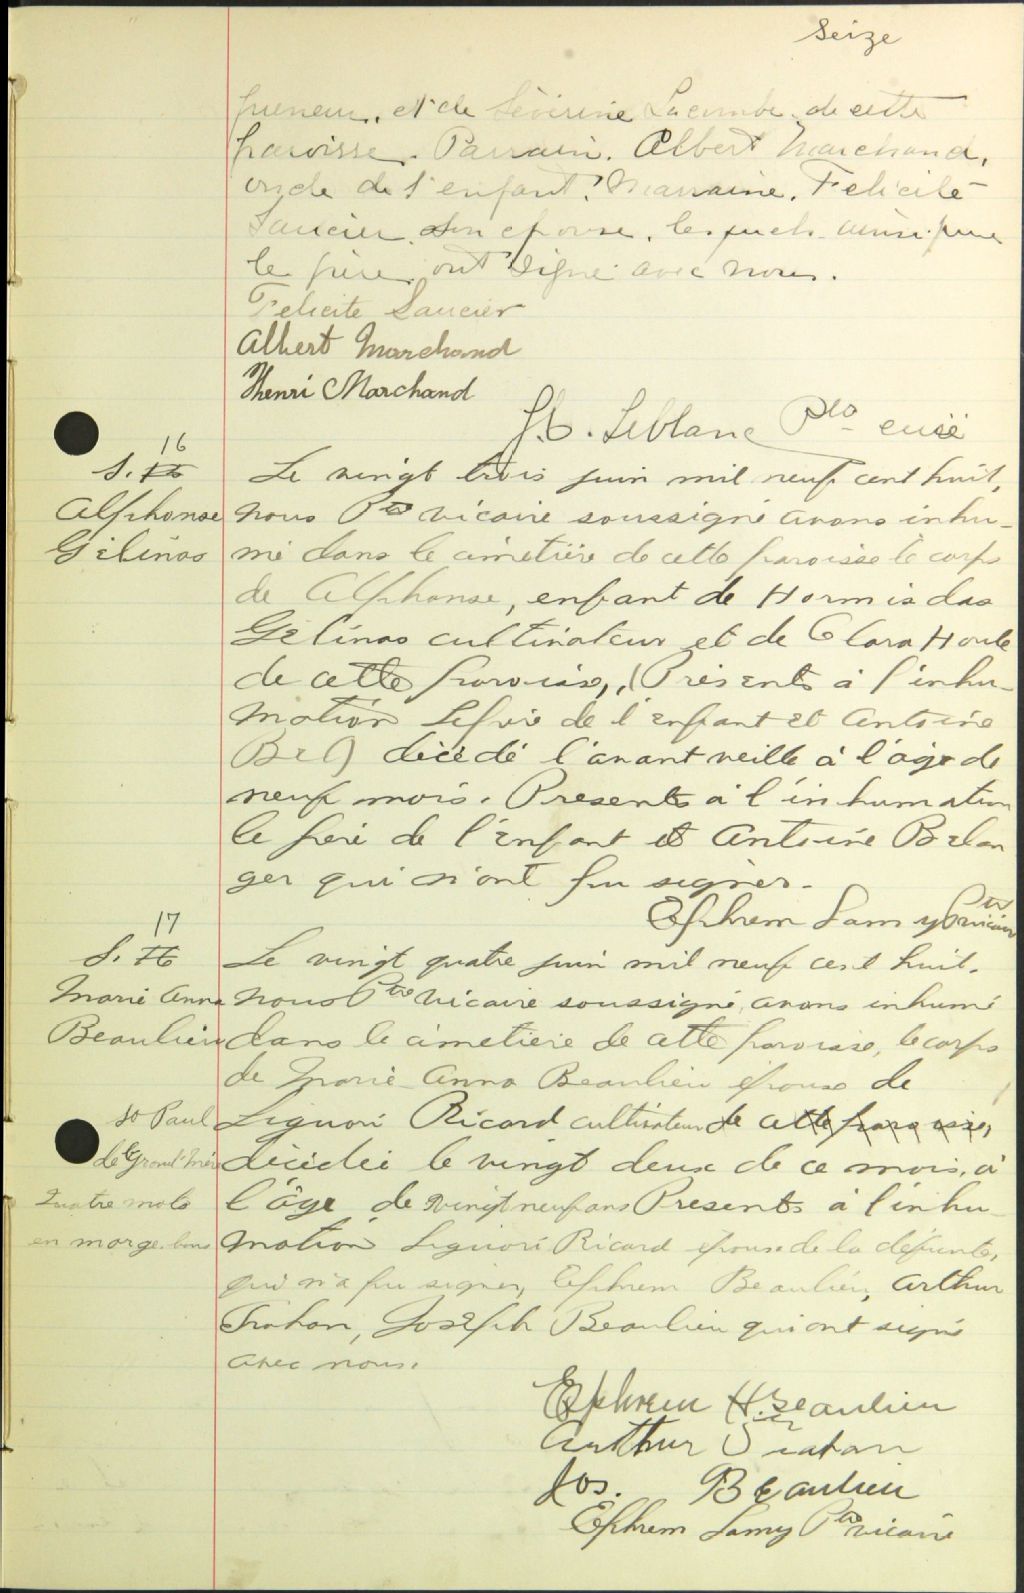 Seize
preneur, et de Séverine Lacombe de cette
paroisse. Parrain. Albert Marchand,
oncle de l'enfant. Marraine. Felicité
Saucier son epouse, lesquels ainsi que
le père ont signé avec nous.
Felicite Saucier
Albert Marchand
Henri Marchand
Leblanc Ptre curé
16
S.
Alphonse
Gélinas
Le vingt trois juin mil neuf cent huit,
nous Ptre vicaire soussigné avons inhu-
mé dans le cimetière de cette paroisse le corps
de Alphonse, enfant de Hormisdas
Gélinas cultivateur et de Clara Houle
de cette paroisse, (Présents à l'inhu-
mation le père de l'enfant et Antoine
Bel) décédé l'avant veille à l'âge de
neuf mois. Presents à l'inhumation
le père de l'enfant et Antoine Bélan
ger qui n'ont pu signer.
Ephrem Lamy Ptre vicaire
17
S.
Marie Anna
Beaulieu
Le vingt quatre juin mil neuf cent huit.
nous Ptre vicaire soussigné, avons inhumé
dans le cimetière de cette paroisse, le corps
de Marie Anna Beaulieu épouse de
St Paul
de Grand'Mère
Quatre mots
en marge bons
Liguori Ricard cultivateur de cette paroisse,
décédée le vingt deux de ce mois, à
l'âge de vingt neuf ans Presents à l'inhu-
mation Liguori Ricard époux de la défunte,
qui n'a pu signer, Ephrem Beaulieu, Arthur
Trahan, Joseph Beaulieu qui ont signé
avec nous.
Ephrem H. Beaulieu
Arthur Trahan
Jos. Beaulieu
Ephrem Lamy Ptre vicaire